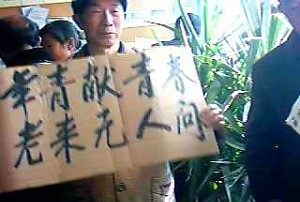 年青献青春
老来无人问